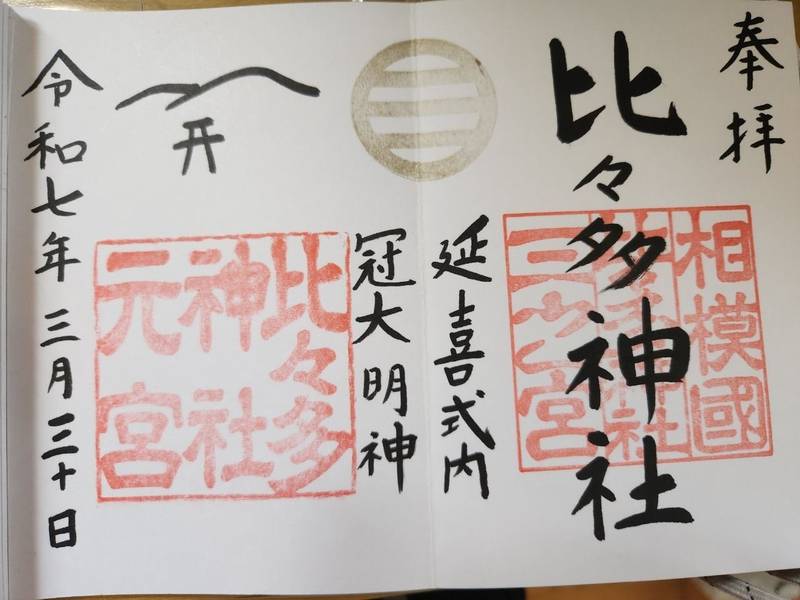 奉拝
比々多神社
相模國
三之宮
延喜式内
冠大明神
比々多
神社
元宮
开
令和七年三月三十日